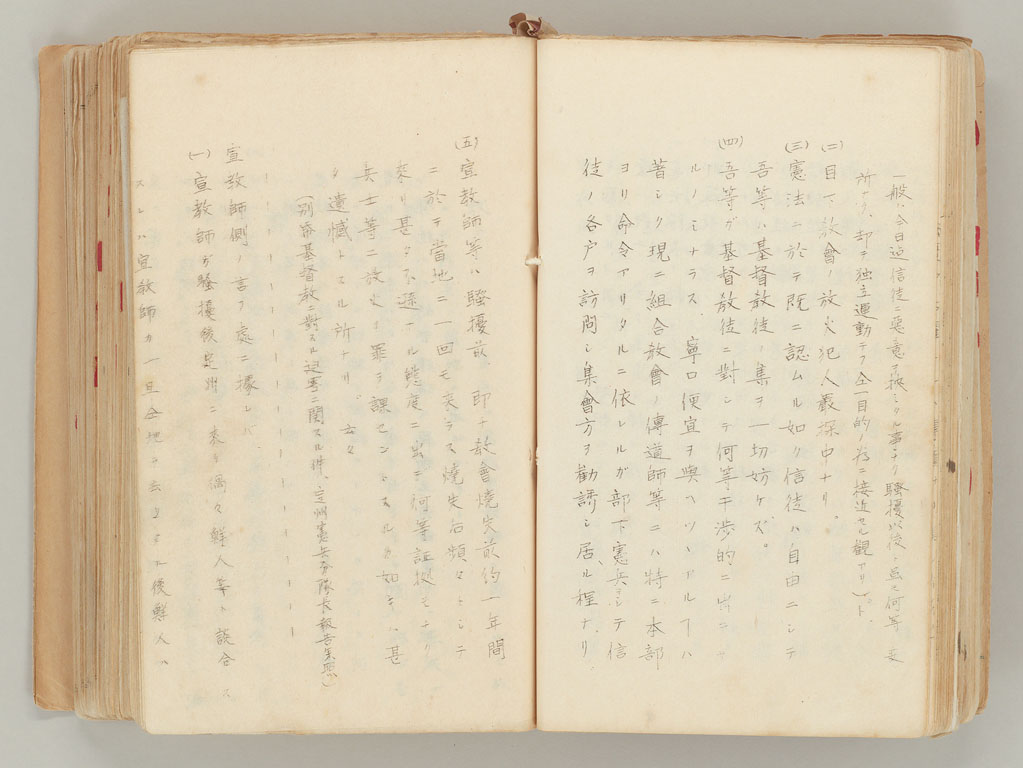 一般ハ今日迠信徒ニ惡意ヲ挾ミタル事ナク騒擾以後ハ亦何等変
所ナク、却テ独立運動テフ仝一目的ノ為ニ接近セル観アリ」ト。
(二)目下教會ノ放火犯人嚴探中ナリ。
(三)憲法ニ於テ既ニ認ムル如ク信徒ハ自由ニシテ
吾等ハ基督教徒ノ集ヲ一切妨ケズ。
(四)吾等ガ基督教徒ニ對シテ何等干渉的ニ出デ
ルノミナラス、寧ロ便宜ヲ與ヘツヽアルコトハ
昔シク現ニ組合教會ノ傳道師等ニハ特ニ本部
ヨリ命令アリタルニ依レルガ部下憲兵ヲシテ信
徒ノ各户ヲ訪問シ集會方ヲ勸誘シ居ル程ナリ。
(五)宣教師等ハ騒擾前、即チ教會燒失前約一年間
ニ於テ當地ニ一回モ来ラス燒失后頻々トシテ
来リ甚タ不遜ナル態度ニ出テ何等証拠モナク
兵士等ニ放火ノ罪ヲ課セントスルカ如キハ甚
タ遺憾トスル所ナリ。云々
(別冊基督教ニ對スル迫害ニ関スル件、定州憲兵分隊長報告参照)
宣教師側ノ言フ處ニ據レバ
(一)宣教師ガ騒擾後定州ニ来リ偶々鮮人等ト談合ス
スレハ宣教師カ一旦仝地ヲ去リタル後鮮人ハ